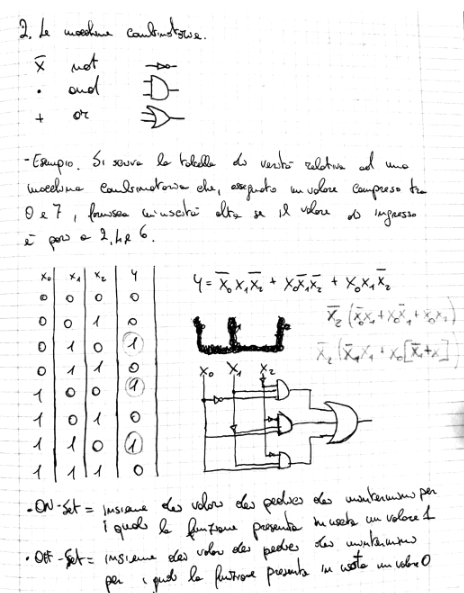 2. Le macchine combinatorie.
x̅ not
· and
+ or
- Esempio. Si scriva la tabella di verità relativa ad una
macchina combinatoria che, assegnato un valore compreso tra
0 e 7, fornisca un'uscita alta se il valore di ingresso
è pari a 2, 4 e 6.
x₀ x₁ x₂ y
0 0 0 0
0 0 1 0
0 1 0 1
0 1 1 0
1 0 0 1
1 0 1 0
1 1 0 1
1 1 1 0
y = x̅₀x₁x̅₂ + x₀x̅₁x̅₂ + x₀x₁x̅₂
x̅₂ (x̅₀x₁ + x₀x̅₁ + x₀x₁)
x₀ x₁ x₂
• ON-Set = insieme dei valori dei pedici dei mintermini per
i quali la funzione presenta in uscita un valore 1
• Off-Set = insieme dei valori dei pedici dei mintermini
per i quali la funzione presenta in uscita un valore 0